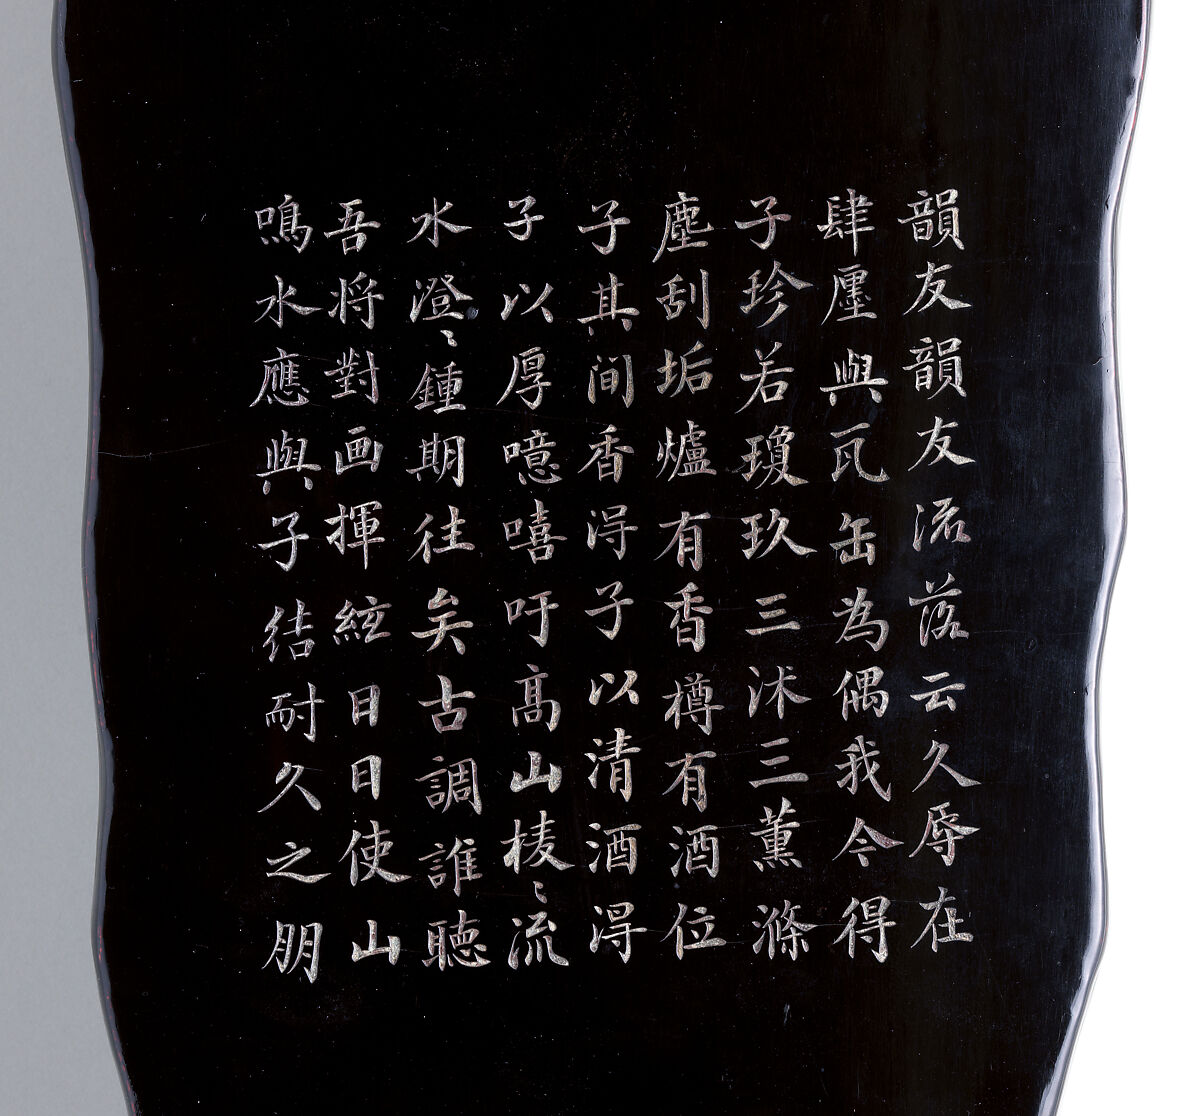 韻友韻友流落云久辱在
肆廛與瓦缶為偶我今得
子珍若瓊玖三沐三薰滌
塵刮垢爐有香樽有酒位
子其间香淂子以清酒淂
子以厚噫嘻吁髙山棱〻流
水澄〻鍾期往矣古調誰聴
吾将對画揮絃日日使山
鳴水應與子结耐久之朋